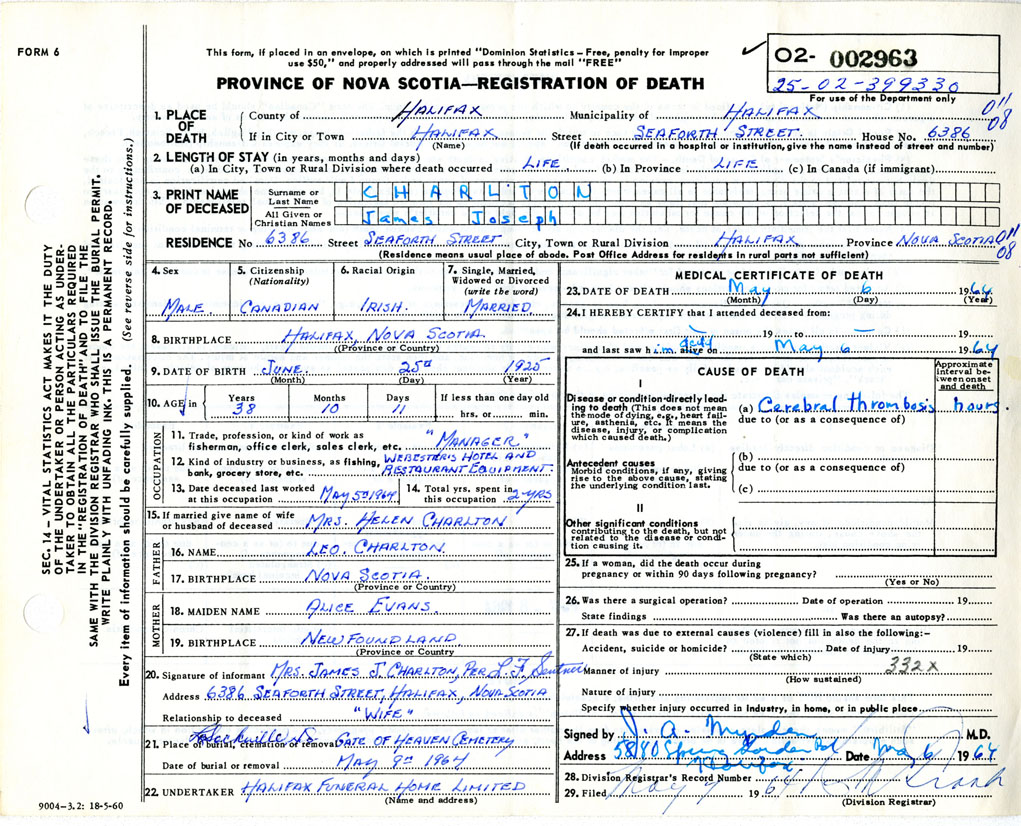 FORM 6
This form, if placed in an envelope, on which is printed "Dominion Statistics – Free, penalty for improper
use $50," and properly addressed will pass through the mail "FREE"
PROVINCE OF NOVA SCOTIA—REGISTRATION OF DEATH
✓ 02- 002963
25-02-399330
For use of the Department only
011
08
1. PLACE OF DEATH
County of HALIFAX Municipality of HALIFAX
If in City or Town HALIFAX Street SEAFORTH STREET House No. 6386
(Name) (If death occurred in a hospital or institution, give the name instead of street and number)
2. LENGTH OF STAY (in years, months and days)
(a) In City, Town or Rural Division where death occurred LIFE (b) In Province LIFE (c) In Canada (if immigrant)
3. PRINT NAME OF DECEASED
Surname or Last Name CHARLTON
All Given or Christian Names James Joseph
RESIDENCE No 6386 Street SEAFORTH STREET City, Town or Rural Division HALIFAX Province NOVA SCOTIA 011
08
(Residence means usual place of abode. Post Office Address for residents in rural parts not sufficient)
4. Sex
MALE
5. Citizenship
(Nationality)
CANADIAN
6. Racial Origin
IRISH.
7. Single, Married,
Widowed or Divorced
(write the word)
MARRIED.
8. BIRTHPLACE HALIFAX, NOVA SCOTIA.
(Province or Country)
9. DATE OF BIRTH JUNE 25th 1925
(Month) (Day) (Year)
10. AGE in
Years Months Days If less than one day old
38 10 11 hrs. or min.
OCCUPATION
11. Trade, profession, or kind of work as
fisherman, office clerk, sales clerk, etc. "MANAGER"
12. Kind of industry or business, as fishing, WEBESTER'S HOTEL AND
bank, grocery store, etc. RESTAURANT EQUIPMENT.
13. Date deceased last worked
at this occupation MAY 5th 1964
14. Total yrs. spent in
this occupation 2 YRS
15. If married give name of wife
or husband of deceased MRS. HELEN CHARLTON
FATHER
16. NAME LEO. CHARLTON.
17. BIRTHPLACE NOVA SCOTIA.
(Province or Country)
MOTHER
18. MAIDEN NAME ALICE EVANS.
19. BIRTHPLACE NEWFOUNDLAND.
(Province or Country)
20. Signature of informant MRS. JAMES J. CHARLTON, PER L. F.
Address 6386 SEAFORTH STREET, HALIFAX, NOVA SCOTIA
Relationship to deceased "WIFE"
Sackville NS
21. Place of burial, cremation or removal GATE OF HEAVEN CEMETERY
Date of burial or removal MAY 9th 1964
22. UNDERTAKER HALIFAX FUNERAL HOME LIMITED
(Name and address)
9004–3.2: 18-5-60
MEDICAL CERTIFICATE OF DEATH
23. DATE OF DEATH May 6 1964
(Month) (Day) (Year)
24. I HEREBY CERTIFY that I attended deceased from:
– 19 to –
and last saw him alive on May 6 1964
CAUSE OF DEATH
Approximate interval between onset and death
I
Disease or condition-directly lead-
ing to death (This does not mean
the mode of dying, e.g., heart fail-
ure, asthenia, etc. It means the
disease, injury, or complication
which caused death.)
(a) Cerebral thrombosis hours.
due to (or as a consequence of)
Antecedent causes
Morbid conditions, if any, giving
rise to the above cause, stating
the underlying condition last.
(b)
due to (or as a consequence of)
(c)
II
Other significant conditions
contributing to the death, but not
related to the disease or condi-
tion causing it.
25. If a woman, did the death occur during
pregnancy or within 90 days following pregnancy?
(Yes or No)
26. Was there a surgical operation? Date of operation 19
State findings Was there an autopsy?
27. If death was due to external causes (violence) fill in also the following:–
Accident, suicide or homicide? Date of injury 19
(State which)
Manner of injury 332x
(How sustained)
Nature of injury
Specify whether injury occurred in industry, in home, or in public place
Signed by J. A. M.D.
Address 5880 Spring Garden Rd Date May 6 1964
Halifax
28. Division Registrar's Record Number
29. Filed May 1964
(Division Registrar)
SEC. 14 – VITAL STATISTICS ACT MAKES IT THE DUTY
OF THE UNDERTAKER OR PERSON ACTING AS UNDER-
TAKER TO OBTAIN ALL THE PARTICULARS REQUIRED
IN THE "REGISTRATION OF DEATH" AND TO FILE THE
SAME WITH THE DIVISION REGISTRAR WHO SHALL ISSUE THE BURIAL PERMIT.
WRITE PLAINLY WITH UNFADING INK. THIS IS A PERMANENT RECORD.
Every item of information should be carefully supplied. (See reverse side for instructions.)